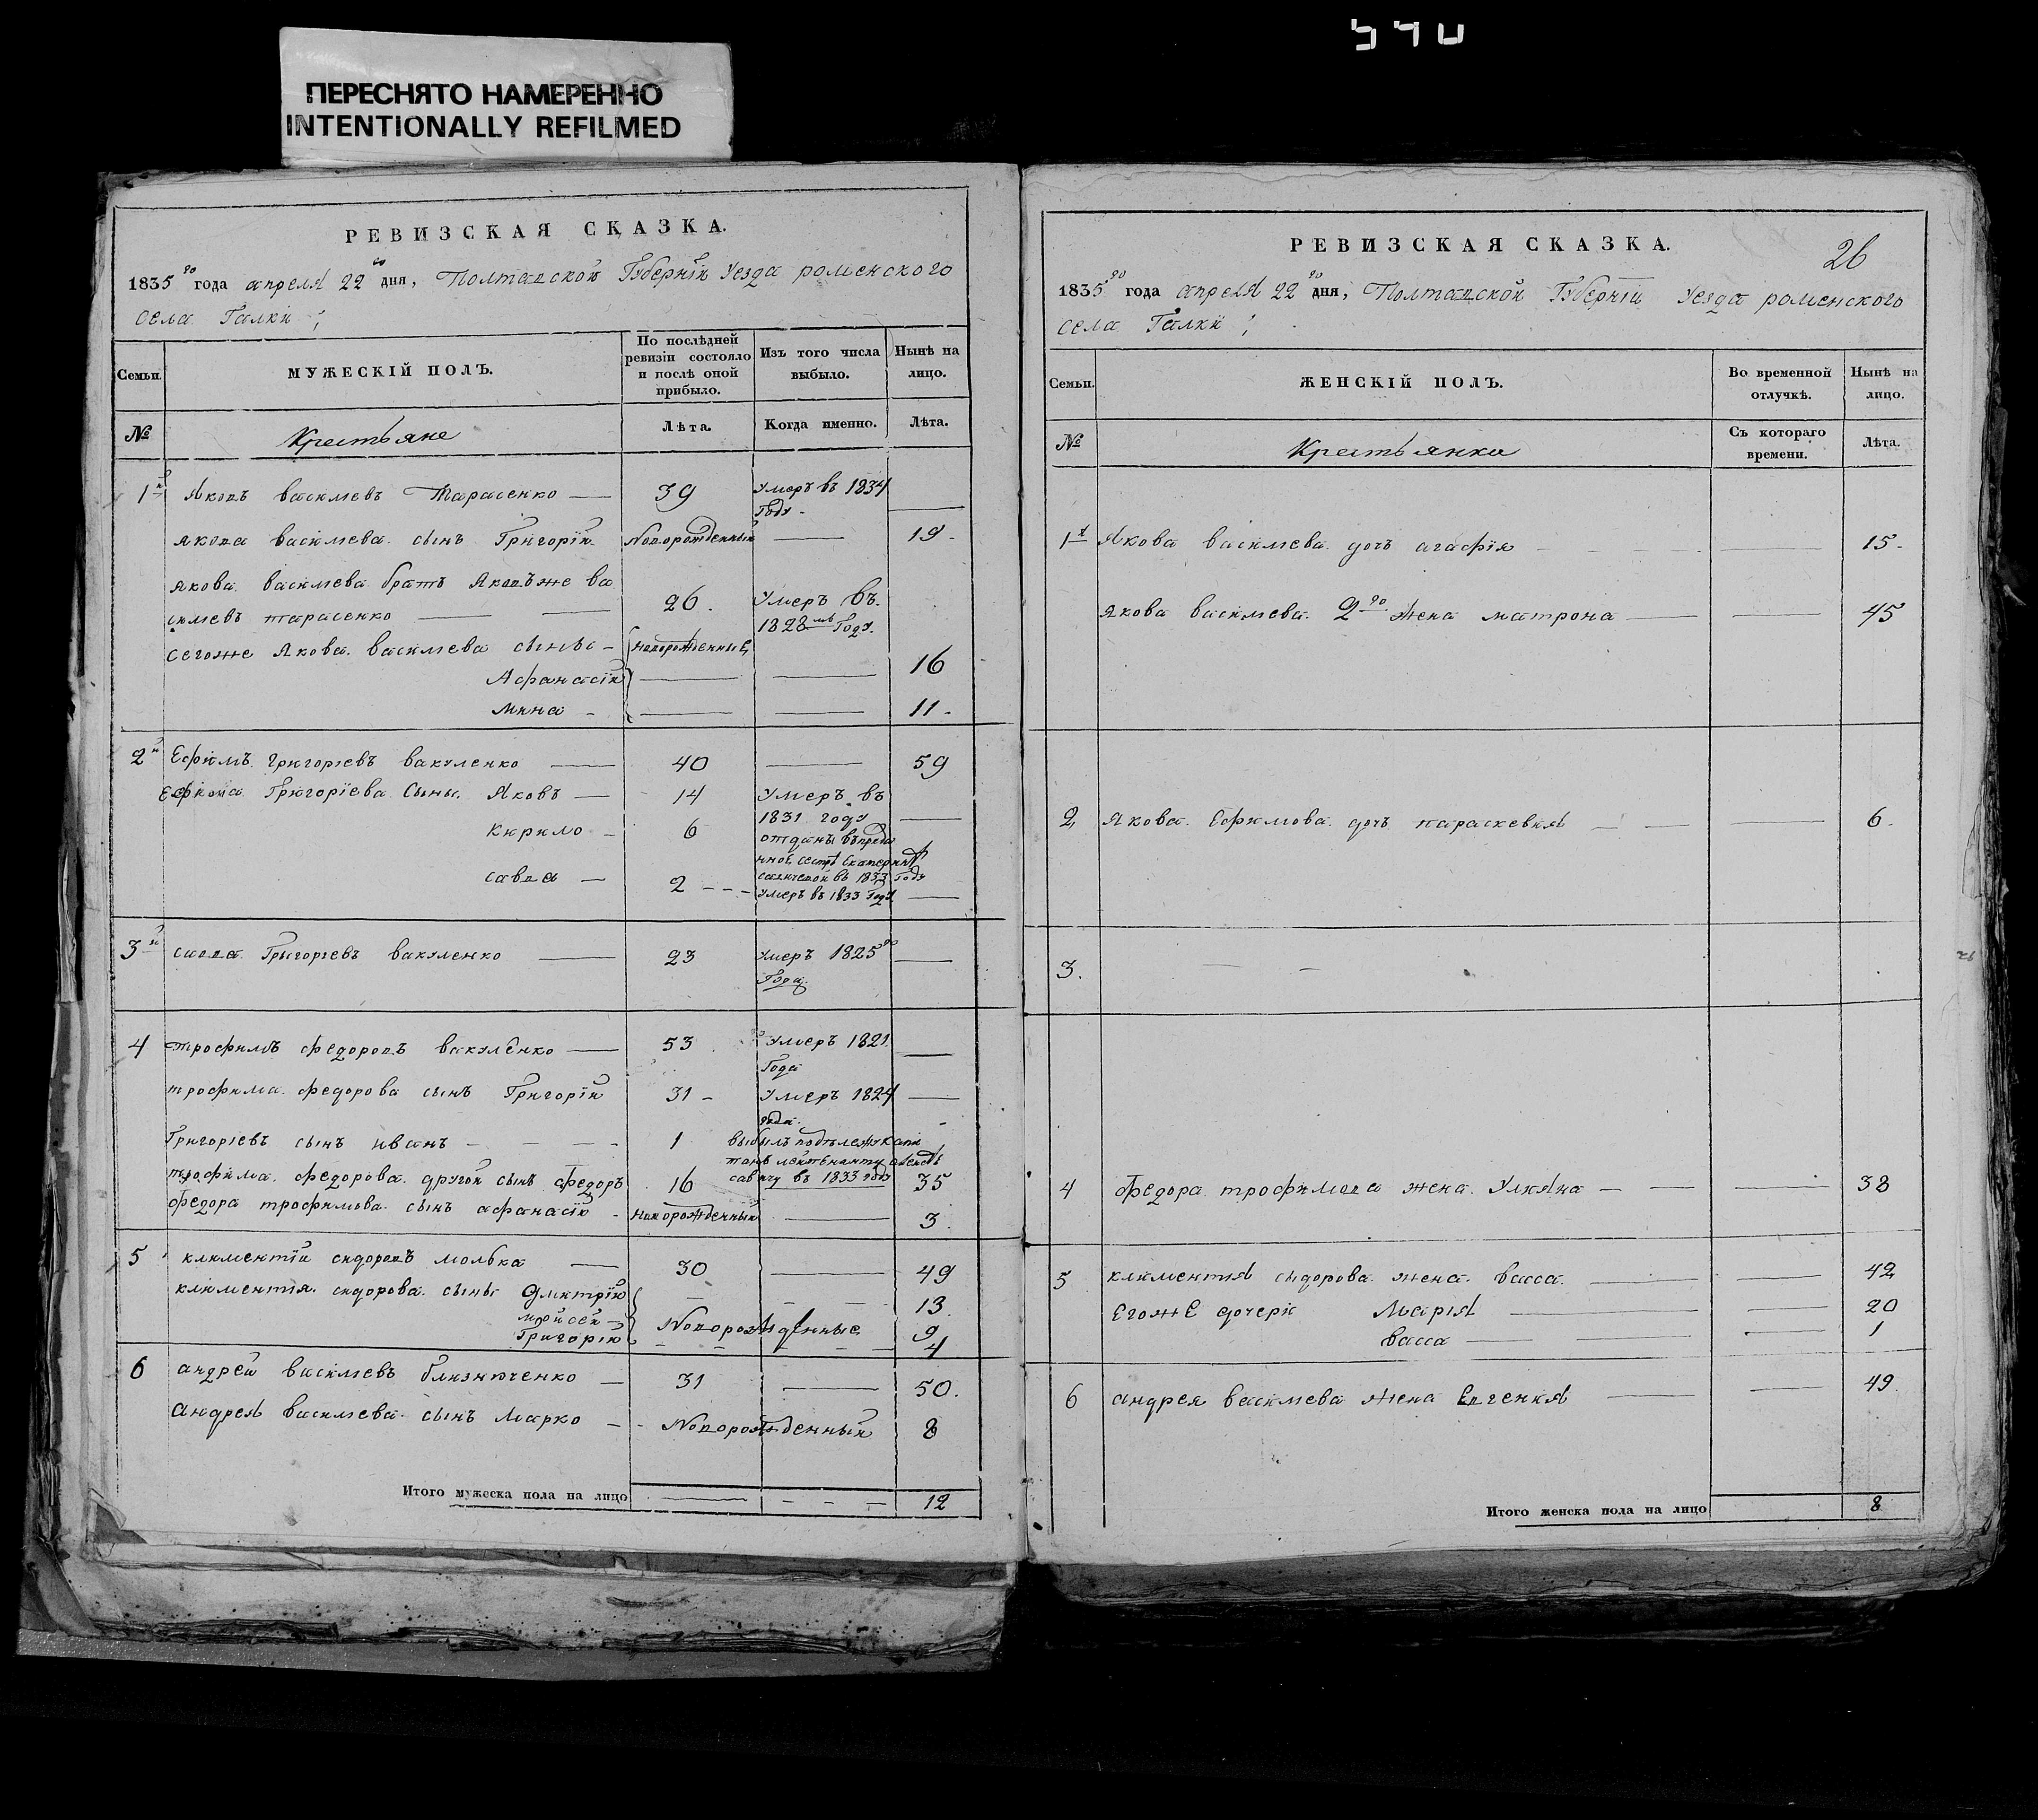 540
ПЕРЕСНЯТО НАМЕРЕННО
INTENTIONALLY REFILMED
РЕВИЗСКАЯ СКАЗКА.
1835го года апреля 22го дня, Полтавской Губернїи Уезда роменского
села Галки;
Семьи.
МУЖЕСКІЙ ПОЛЪ.
По послѣдней ревизіи состояло и послѣ оной прибыло.
Изъ того числа выбыло.
Нынѣ на лицо.
№
Крестьяне
Лѣта.
Когда именно.
Лѣта.
1й Яковъ васильевъ Тарасенко — 39 Умеръ въ 1834 —
Году -
якова васильева сынъ Григорїй Новорожденный — 19-
якова васильева братъ Яковъ же ва
сильевъ тарасенко — 26. Умеръ въ
1828мъ Году.
сегоже Якова васильева сыны - новорожденные
Афанасїй — — 16
Мина - — — 11-
2й Ефимъ григорїевъ вакуленко — 40 — 59
Ефима Григорїева Сыны Яковъ — 14 Умеръ въ
1831 году —
кирило - 6 отданы въ
сестрѣ Екатерин
савва — 2 - - - въ 1833 Году
умеръ въ 1833 Году —
3й савва Григорїевъ вакуленко — 23 умеръ 1825го —
Года.
4 трофимъ федоровъ вакуленко — 53 умеръ 1821 —
Года
трофима федорова сынъ Григорїй 31 - Умеръ 1824 —
года.
Григорїевъ сынъ иванъ - - - - 1 выбылъ
савичу въ 1833 году
трофима федорова другой сынъ федоръ 16 35
федора трофимова сынъ афанасїй - новорожденный — 3.
5 климентїй сидоровъ молька — 30 — 49
климентїя сидорова сыны Дмитрїй - - - 13.
мойсей - Новорожденные 9
Григорїй - - - - - 4
6 андрей васильевъ близнюченко — 31 — 50.
андрея васильева сынъ Марко - - Новорожденный 8
Итого мужеска пола на лицо — - - - 12
РЕВИЗСКАЯ СКАЗКА.
26
1835го года апреля 22го дня, Полтавской Губернїи Уезда роменского
села Галки;
Семьи.
ЖЕНСКІЙ ПОЛЪ.
Во временной отлучкѣ.
Нынѣ на лицо.
№
Крестьянки
Съ котораго времени.
Лѣта.
1я Якова васильева дочъ агафїя - - - - — 15-
якова васильева 2го жена матрона — — 45
2 Якова Ефимова дочъ параскевия — — — 6.
3. — -
4 федора трофимова жена Улияна — — — 38
5 климентия сидорова жена васса — — 42
Егоже дочери Мария — — 20
васса — — — 1
6 андрея васильева жена Евгения — — 49.
Итого женска пола на лицо 8